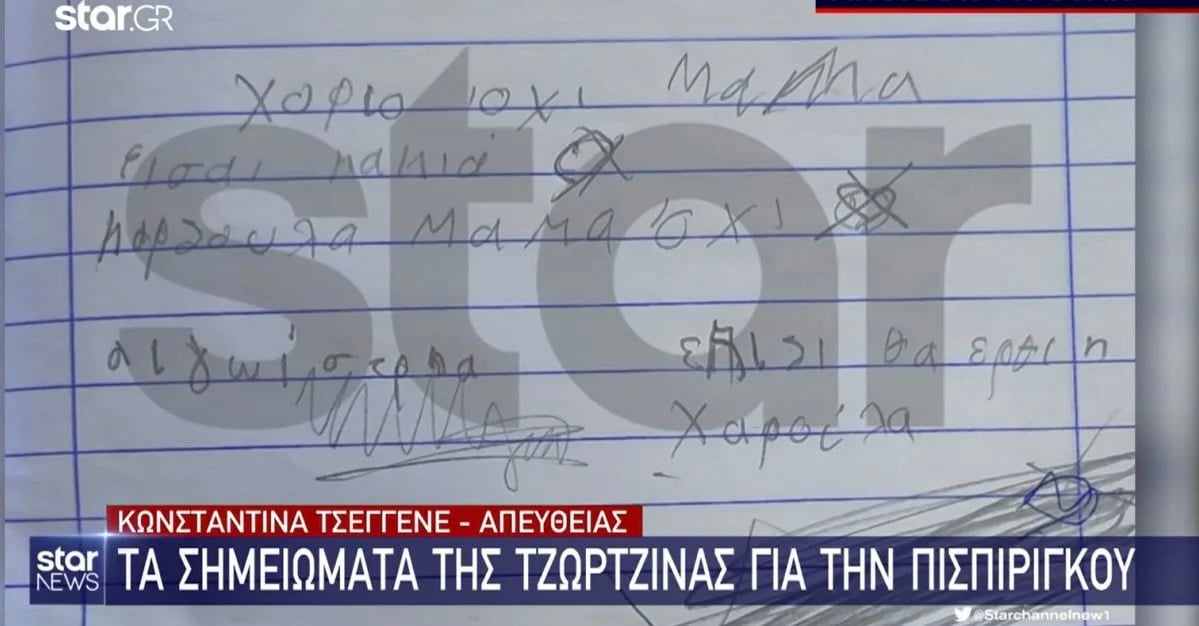 star.GR
χοριο όχι Μαμα
είσαι κακιά
κορδουλα μαμα όχι
star
επισι θα ερθι η
Χαρούλα
ΚΩΝΣΤΑΝΤΙΝΑ ΤΣΕΓΓΕΝΕ - ΑΠΕΥΘΕΙΑΣ
star NEWS
ΤΑ ΣΗΜΕΙΩΜΑΤΑ ΤΗΣ ΤΖΩΡΤΖΙΝΑΣ ΓΙΑ ΤΗΝ ΠΙΣΠΙΡΙΓΚΟΥ
@Starchannelnow1